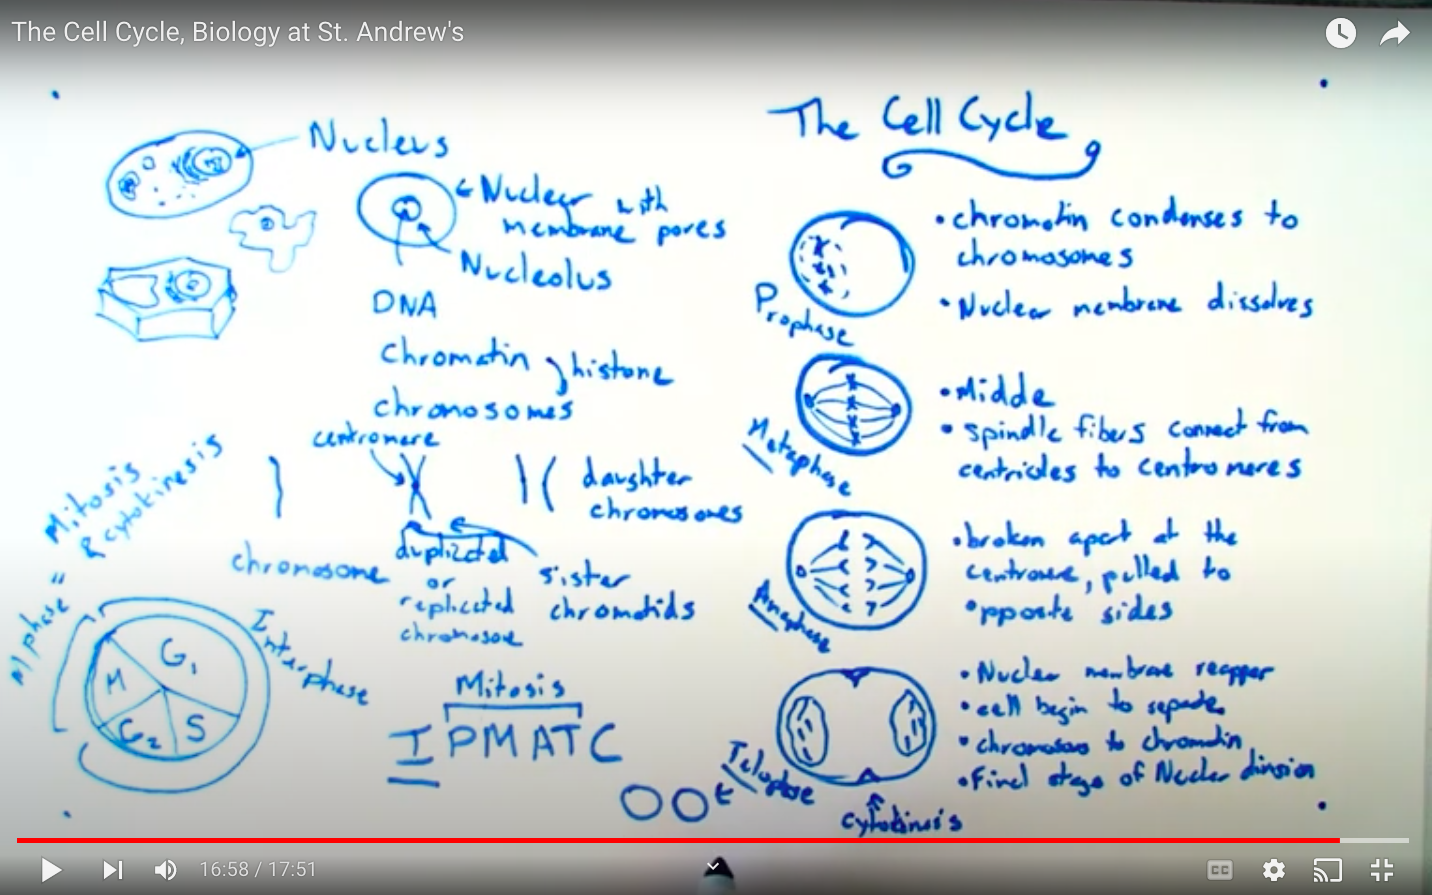 The Cell Cycle, Biology at St. Andrew's
Nucleus
Nuclear with
membrane pores
Nucleolus
DNA
Chromatin
histone
chromosomes
centromere
daughter
chromosomes
chromosome
duplicated
or
replicated
chromosome
sister
chromatids
Mitosis
& cytokinesis
M phase
Interphase
G1
M
G2
S
Mitosis
I PMATC
The Cell Cycle
Prophase
• chromatin condenses to
chromosomes
• Nuclear membrane dissolves
Metaphase
• Midde
• spindle fibers connect from
centrioles to centromeres
Anaphase
• broken apart at the
centromere, pulled to
opposite sides
Telophase
• Nuclear membrane reapper
• cell begin to separate
• chromosomes to chromatin
• Final stage of Nuclear division
cytokinesis
16:58 / 17:51
CC